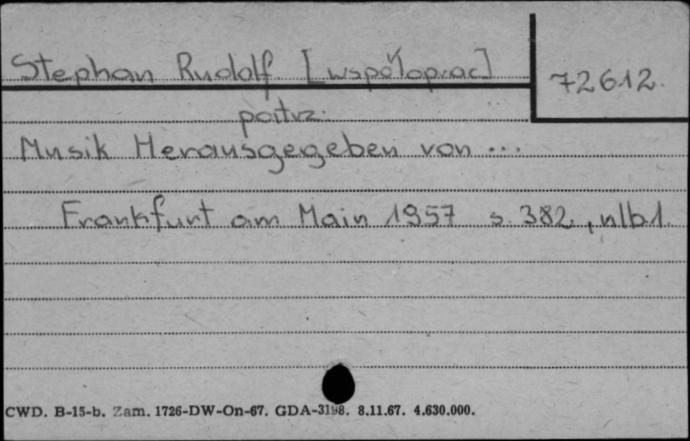 Stephan Rudolf [współoprac]
72612.
patrz:
Musik Herausgegeben von ...
Frankfurt am Main 1957 s. 382, nlb1.
CWD. B-15-b. Zam. 1726-DW-On-67. GDA-3198. 8.11.67. 4.630.000.